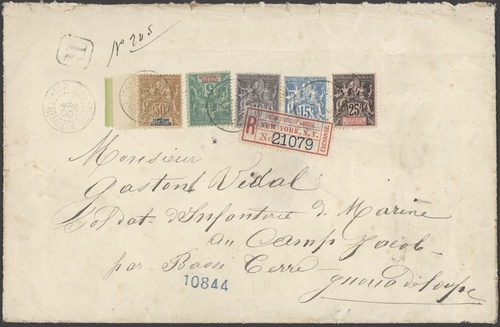 R
No 245
30
5
15
25
R
NEW YORK, N.Y.
No 21079
EXCHANGE
Monsieur
Gaston Vidal
Soldat d'Infanterie d. Marine
au Camp Jacob
par Basse Terre
10844
Guouadeloupe